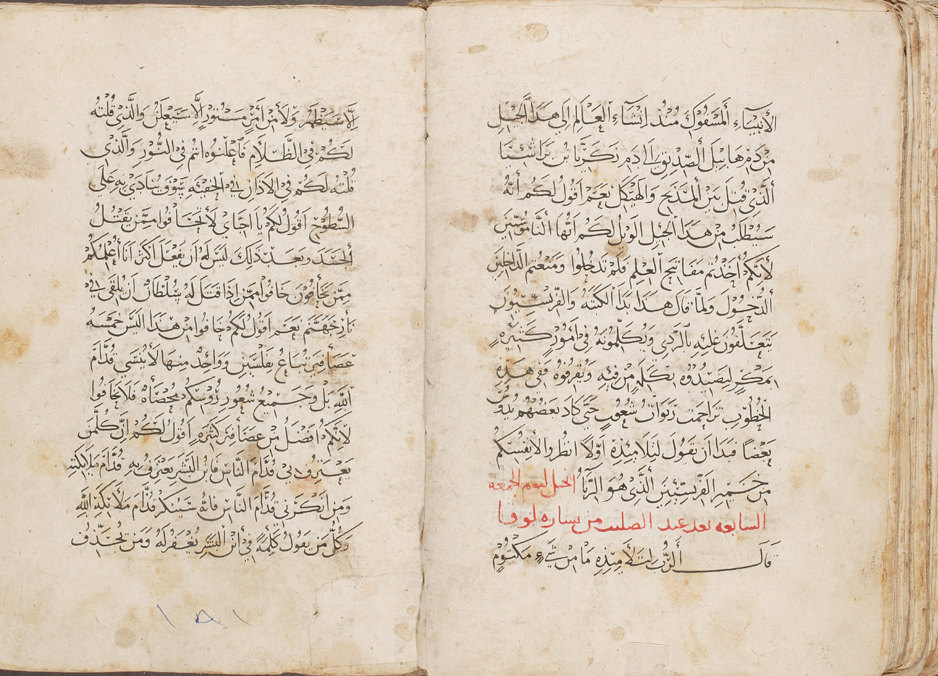 الانبياء المسفوك منذ انشاء العالم الى هذا الجيل
من دم هابيل الصديق الى دم زكريا بن براشيا
الذي قتل بين المذبح والهيكل نعم اقول لكم انه
سيطلب من هذا الجيل الويل لكم ايها الناموسيين
لانكم اخذتم مفاتيح العلم فلم تدخلوا ومنعتم الداخلين
الدخول ولما قال هذا بدا الكتبه والفريسيون
يتعلقون عليه بالردي ويكلمونه في امور كثيره
بمكر ليصيدوه بكلمه من فيه ويقرفوه وفي هذه
الخطوب تراجمت ربوات شعوب حتى كاد بعضهم يدوس
بعضا فبدا ان يقول لتلاميذه اولا انظروا لانفسكم
من خمير الفريسيين الذي هو الريا الانجيل ليوم الجمعه
السابعه بعد عيد الصليب من بشاره لوقا
قال الرب لتلاميذه ما من شيء مكتوم
الا سيظهر ولا من امر مستور الا سيعلن والذي قلته
لكم في الظلام فاعلنوه انتم في النور والذي
قلته لكم في الاذان في الخفيه سوف ينادي به على
السطوح اقول لكم يا احباي لا تخافوا ممن يقتل
الجسد وبعد ذلك ليس له ان يفعل اكثر انا اعلمكم
ممن تخافون خافوا ممن اذا قتل له سلطان ان يلقي في
نار جهنم نعم اقول لكم خافوا من هذا اليس خمسه
عصافير تباع بفلسين وواحد منها لا ينسي قدام
الله بل وجميع شعور رؤسكم محصاه فلا تخافوا
لانكم افضل من عصافير كثيره اقول لكم ان كل من
يعترف بي قدام الناس فابن البشر يعترف به قدام ملايكته
ومن انكرني قدام الناس فانه سينكر قدام ملايكة الله
وكل من يقول كلمة في ابن البشر يغفر له ومن يجدف
١٥١